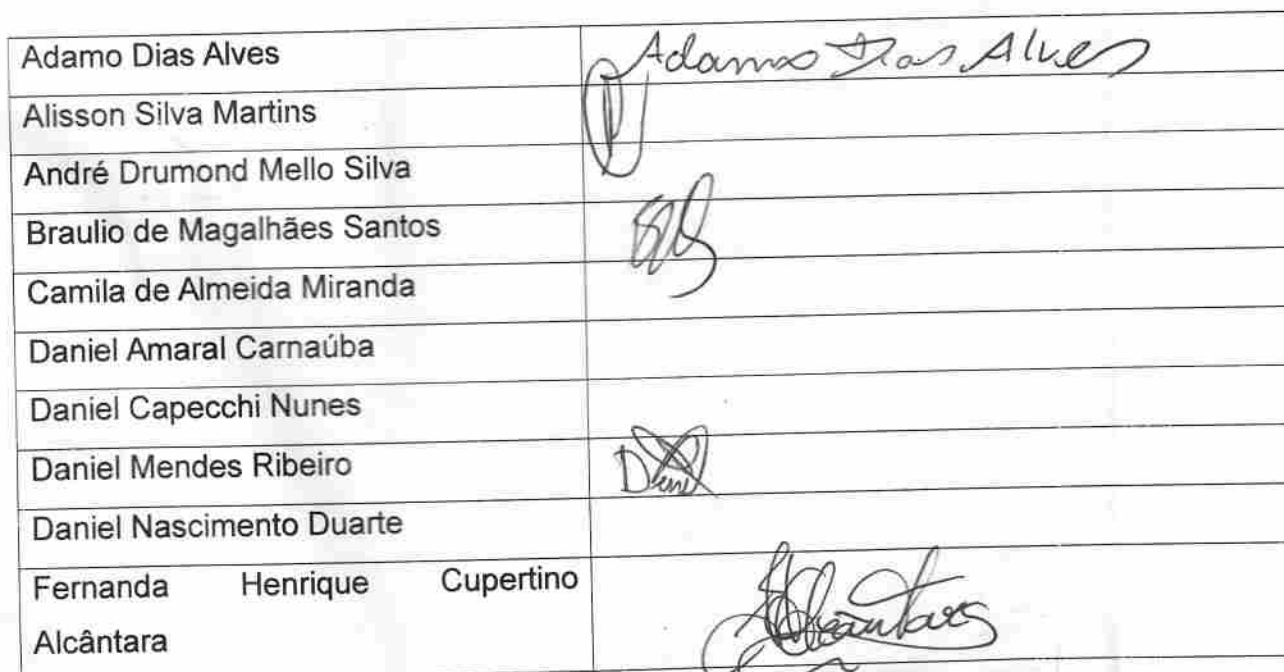 Adamo Dias Alves Adamo Dias Alves
Alisson Silva Martins
André Drumond Mello Silva
Braulio de Magalhães Santos
Camila de Almeida Miranda
Daniel Amaral Carnaúba
Daniel Capecchi Nunes
Daniel Mendes Ribeiro
Daniel Nascimento Duarte
Fernanda Henrique Cupertino
Alcântara Alcântara